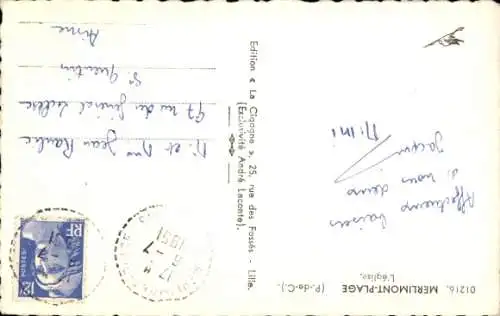 01216. MERLIMONT-PLAGE (P.-de-C.).
L'église.
Affectueux baisers
à nous deux
Jacqui
Mimi
Edition « La Cigogne », 25, rue des Fossés - Lille.
(Exclusivité André Leconte).
M. et Mme Jean
47 rue du Général Leclerc
St Quentin
Aisne
17 H
6 - 7
1951
RF
POSTES
12F